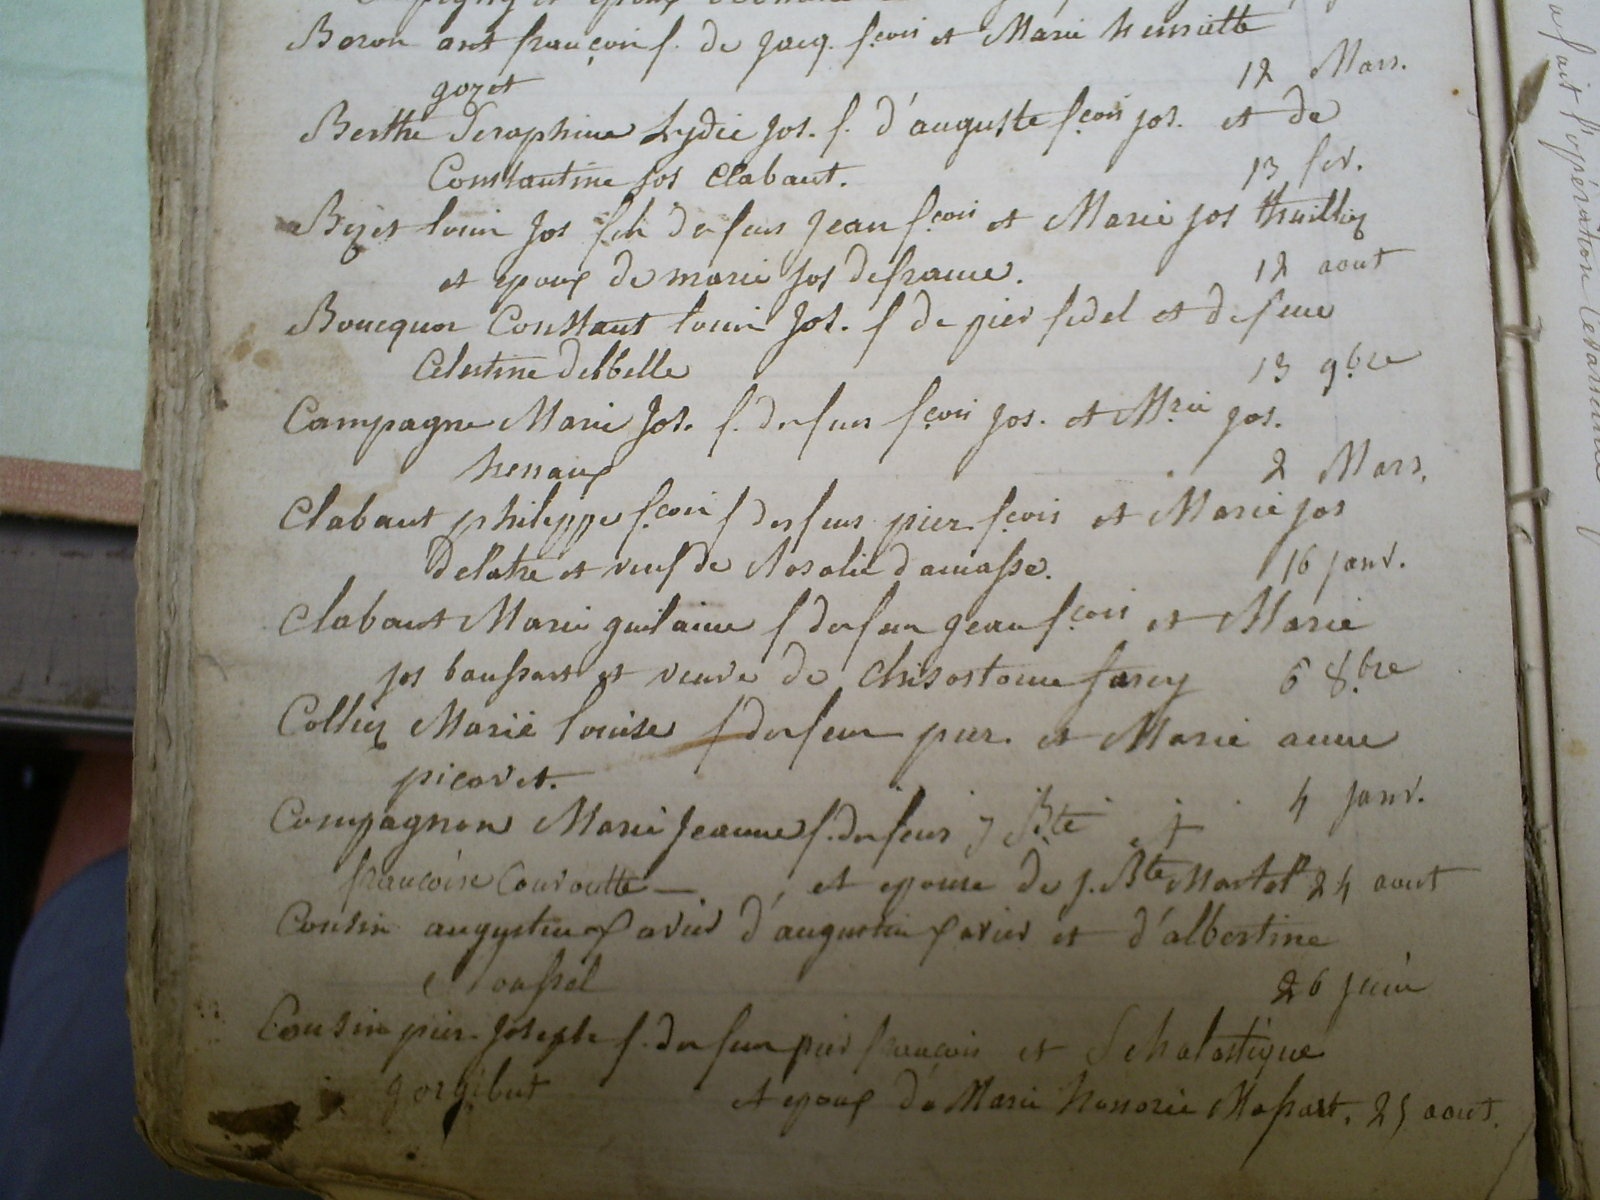 Boron ant françois f. de Jacq. fçois et Marie henriette
gozet 12 Mars.
Berthe Seraphine Lydie Jos. f. d'auguste fçois jos. et de
Constantine jos Clabaut. 13 fev.
Bizet louis Jos fils de feus Jean fçois et Marie jos thuilliez
et epoux de marie jos defrance. 12 aout
Boucquoi Constant louis Jos. f de pier fidel et de feue
Celestine delbelle 13 9bre
Campagne Marie Jos. f. de feus fçois jos. et Mrie jos.
henaux 2 Mars.
Clabaut philippe fçois f de feus pier fçois et Marie jos
Delatre et veuf de Rosalie damasse. 16 janv.
Clabaut Marie guilaine f de feu Jean fçois et Marie
jos baussart et veuve de Chrisostome farcy 6 8bre
Colliez Marie louise f de feu pier. et Marie anne
picavet. 4 janv.
Compagnon Marie Jeanne f. de feus j Bte et
francoise Couroutte — et epouse de j. Bte Martel 24 aout
Cousin augustin Xavier d'augustin Xavier et d'albertine
Roussel 26 juin
Cousin pier Joseph f. de feu pier françois et Scholastique
gorgibut et epoux de Marie honorée Massart. 25 aout.
a fait l'opération Césarienne